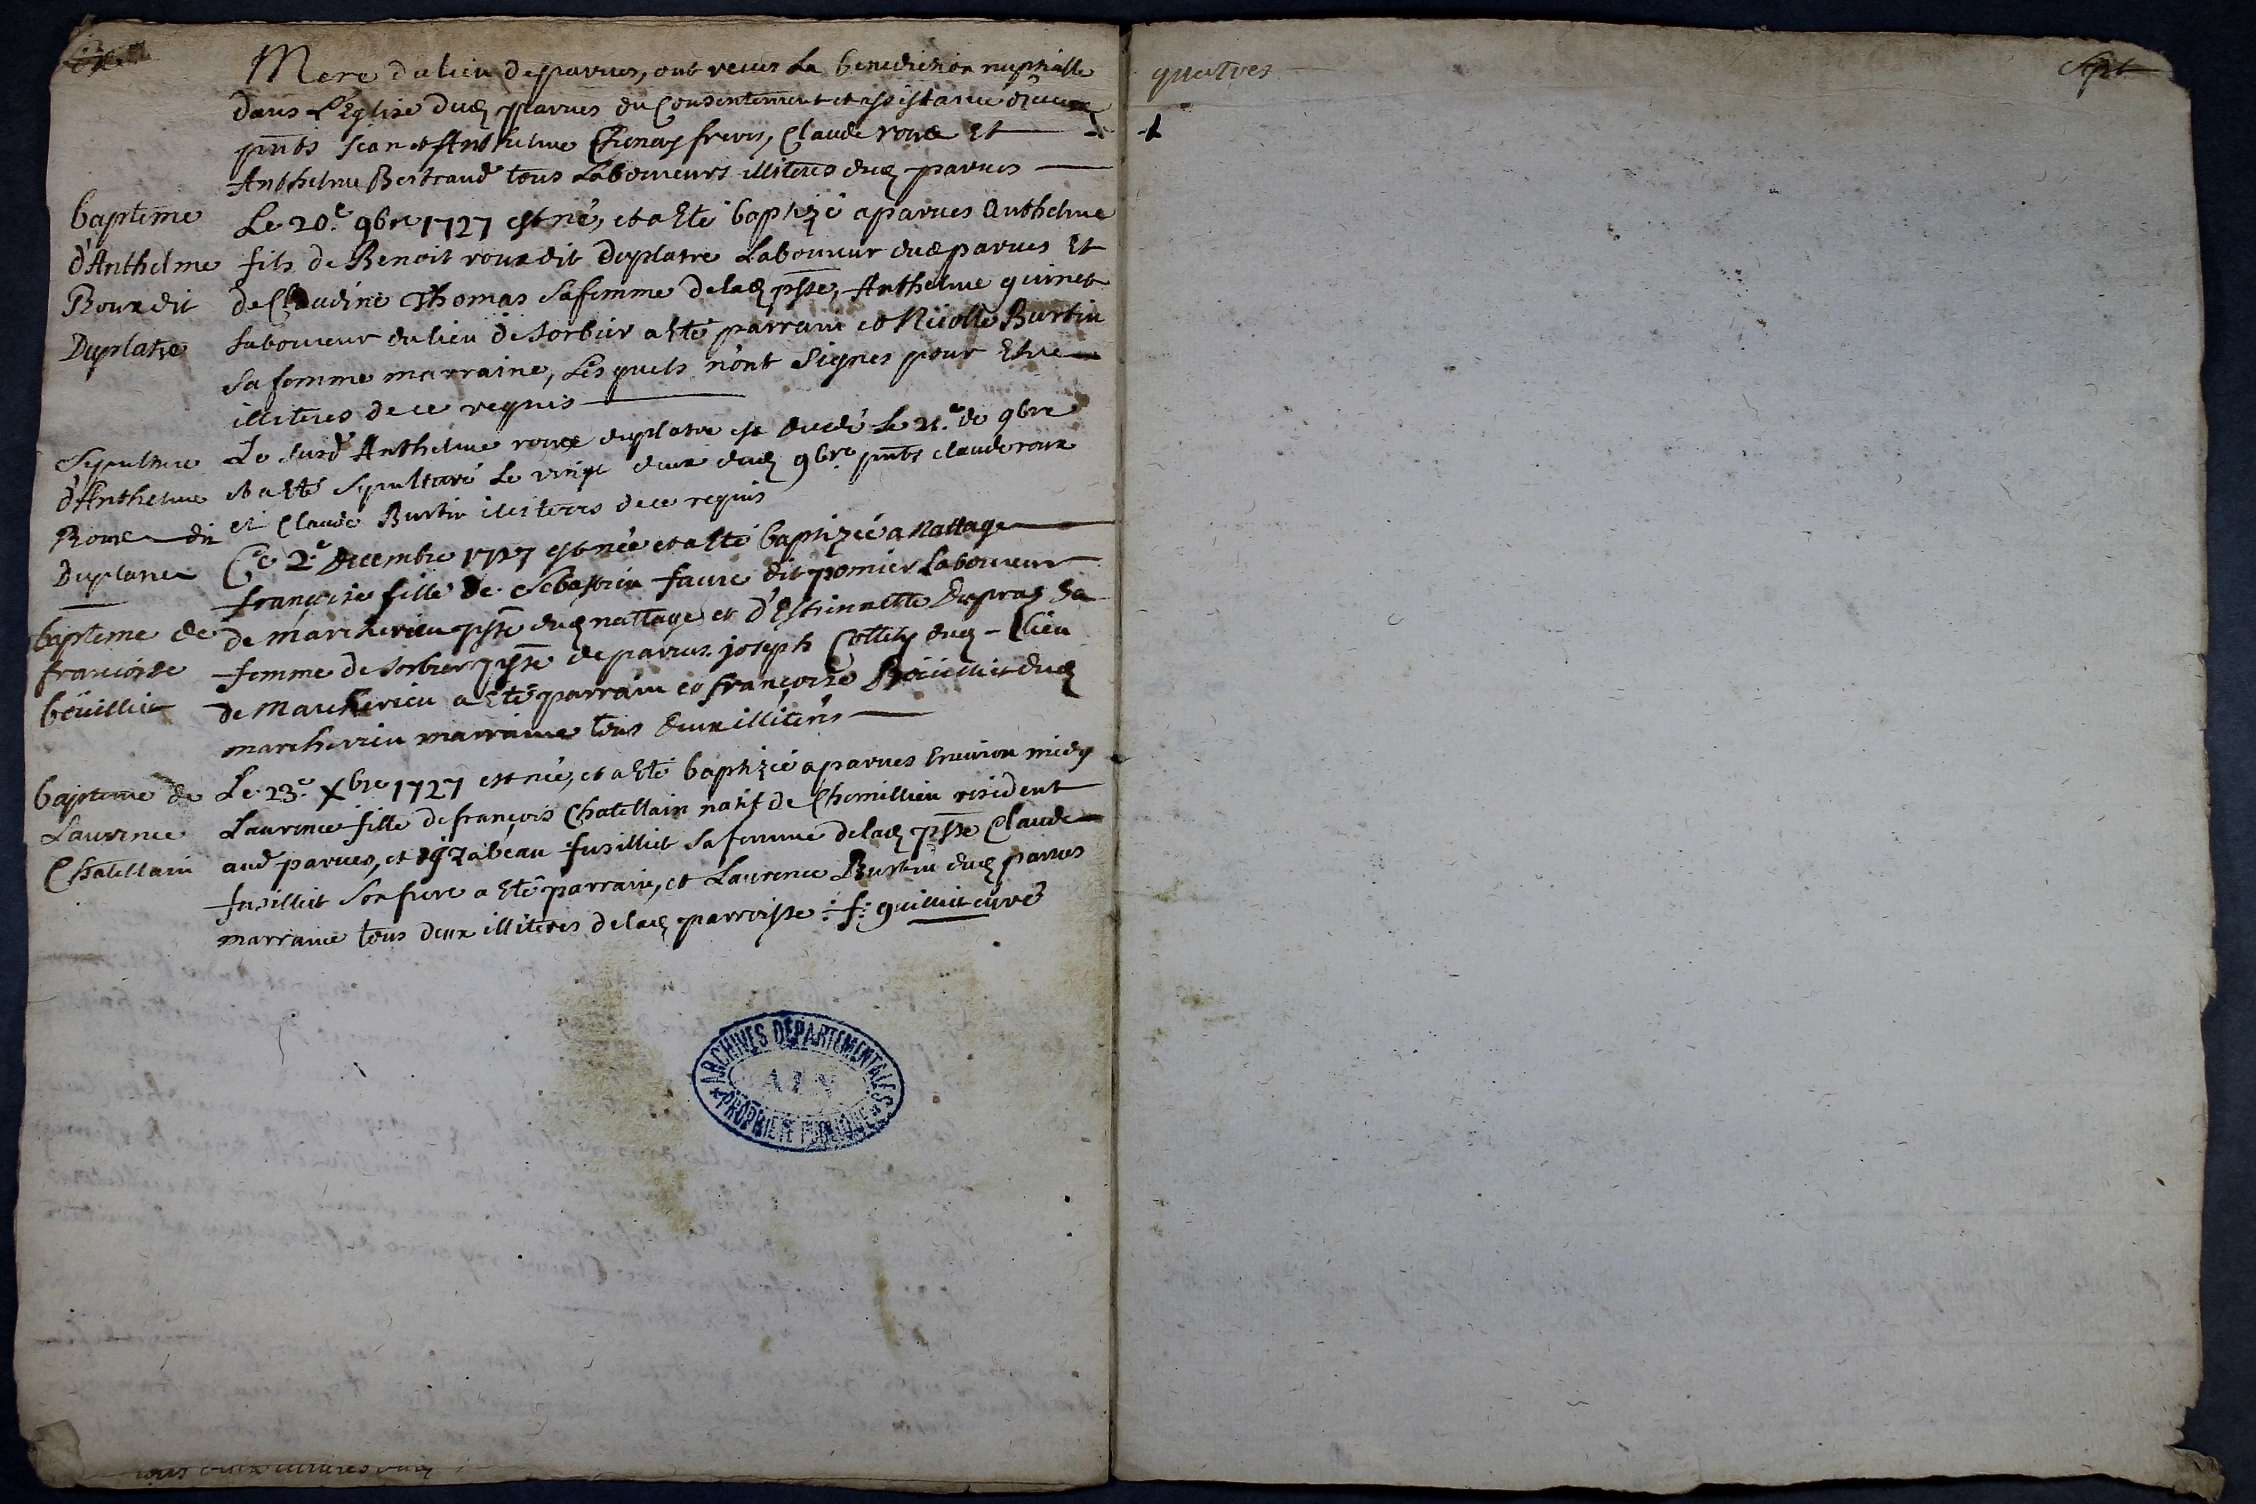 Mere du lieu de parves, ont receus La benediction nuptialle
dans L'Eglise dud parves du Consentement et assistance
pnts Jean et Anthelme Chenay freres, Claude roux Et
Anthelme Bertrand tous Laboureurs illiteres dud parves
bapteme
d'Anthelme
Roux dit
Duplatre
Le 20.e 9bre 1727 est né, et a Eté baptizé a parves Anthelme
fils de Benoit roux dit Duplatre Laboureur dud parves Et
de Claudine Thomas sa femme de lad psse, Anthelme quinet
Laboureur du lieu de sorbier a Eté parrain et Nicolle Burtin
sa femme marraine, Lesquels n'ont signes pour Etre
illiteres de ce requis
Sepulture
d'Anthelme
Roux dit
Duplatre
Le susd Anthelme roux duplatre est decedé Le 21.e de 9bre
et a Eté sepulturé Le vingt deux dud 9bre pnts claude roux
et Claude Burtin illiteres de ce requis
bapteme de
francoise
boüillit
Ce 2.e Decembre 1727 est née et a Eté baptizée a Nattage
françoise fille de Sebastien faure dit pomier Laboureur
de marcherieu psse dud nattage et d'Estiennette Dupraz sa
femme de sorbier psse de parves. joseph Collety dud Lieu
de Marcherieu a Eté parrain et françoise Boüillit dud
marcherieu marraine tous deux illiterés
bapteme de
Laurence
Chatellain
Le 23.e Xbre 1727 est née, et a Eté baptizée a parves Environ midy
Laurence fille de françois Chatellain natif de Chemillieu resident
aud parves, et Izabeau fusillet sa femme de lad psse Claude
fusillet son frere a Eté parrain, et Laurence Burtin dud parves
marraine tous deux illiteres de lad parroisse : f: quinit curé
ARCHIVES DÉPARTEMENTALES
AIN
PROPRIÉTÉ PUBLIQUE
quatres
Sept